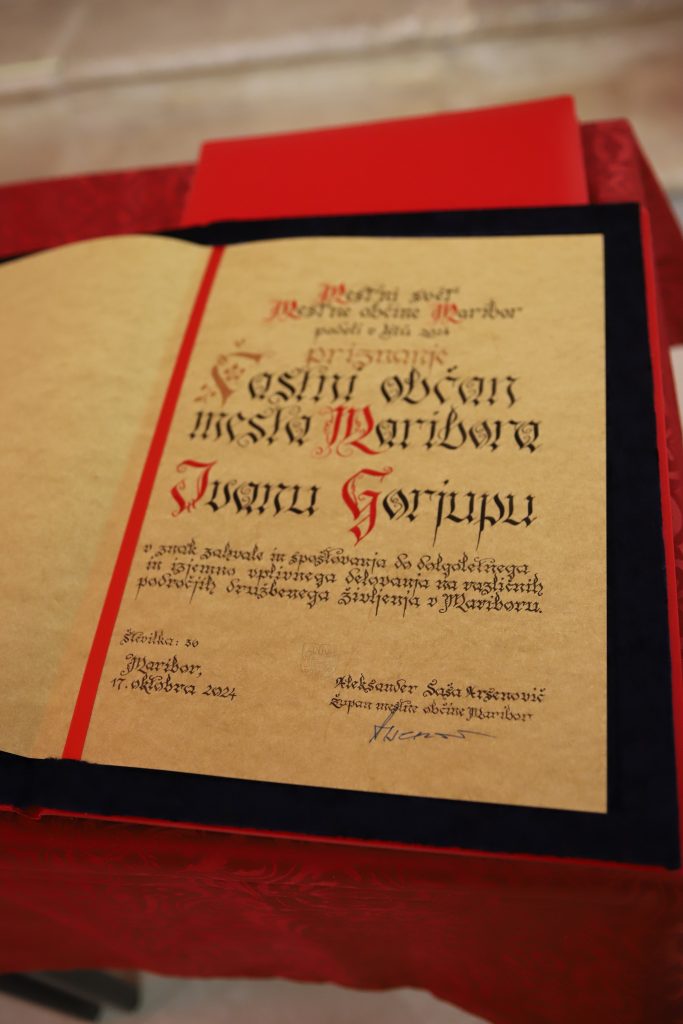 Mestni svet
Mestne občine Maribor
podeli v letu 2024
priznanje
Častni občan
mesta Maribora
Ivanu Gorjupu
v znak zahvale in spoštovanja do dolgoletnega
in izjemno vplivnega delovanja na različnih
področjih družbenega življenja v Mariboru.
Številka: 56
Maribor,
17. oktobra 2024
Aleksander Saša Arsenovič
Župan mestne občine Maribor